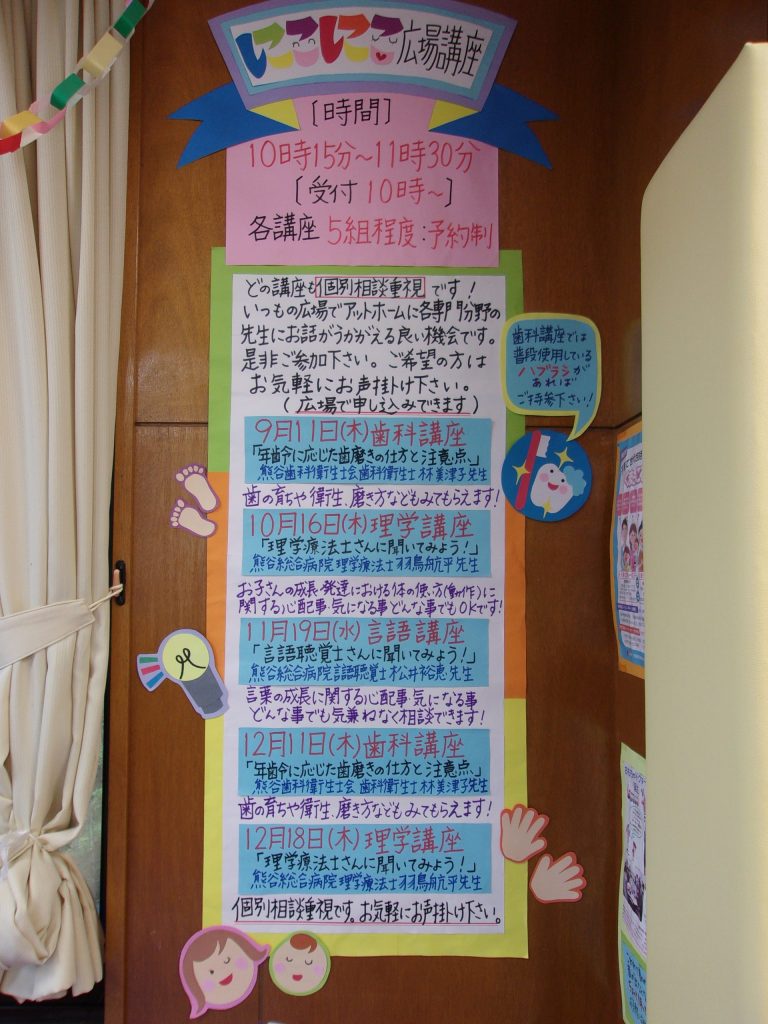 にこにこ広場講座
[時間]
10時15分～11時30分
[受付 10時～]
各講座 5組程度:予約制
どの講座も個別相談重視です!
いつもの広場でアットホームに各専門分野の
先生にお話がうかがえる良い機会です。
是非ご参加下さい。ご希望の方は
お気軽にお声掛け下さい。
(広場で申し込みできます)
歯科講座では
普段使用している
ハブラシが
あれば
ご持参下さい!
9月11日(木)歯科講座
「年齢に応じた歯磨きの仕方と注意点」
熊谷歯科衛生士会 歯科衛生士 林 美津子先生
歯の育ちや衛生、磨き方などもみてもらえます!
10月16日(木)理学講座
「理学療法士さんに聞いてみよう!」
熊谷総合病院 理学療法士 羽鳥航平 先生
お子さんの成長・発達における体の使い方(動作)に
関する心配事・気になる事どんな事でもOKです!
11月19日(水)言語講座
「言語聴覚士さんに聞いてみよう!」
熊谷総合病院 言語聴覚士 松井裕恵 先生
言葉の成長に関する心配事・気になる事
どんな事でも気兼ねなく相談できます!
12月11日(木)歯科講座
「年齢に応じた歯磨きの仕方と注意点」
熊谷歯科衛生士会 歯科衛生士 林 美津子先生
歯の育ちや衛生、磨き方などもみてもらえます!
12月18日(木)理学講座
「理学療法士さんに聞いてみよう!」
熊谷総合病院 理学療法士 羽鳥航平 先生
個別相談重視です。お気軽にお声掛け下さい。